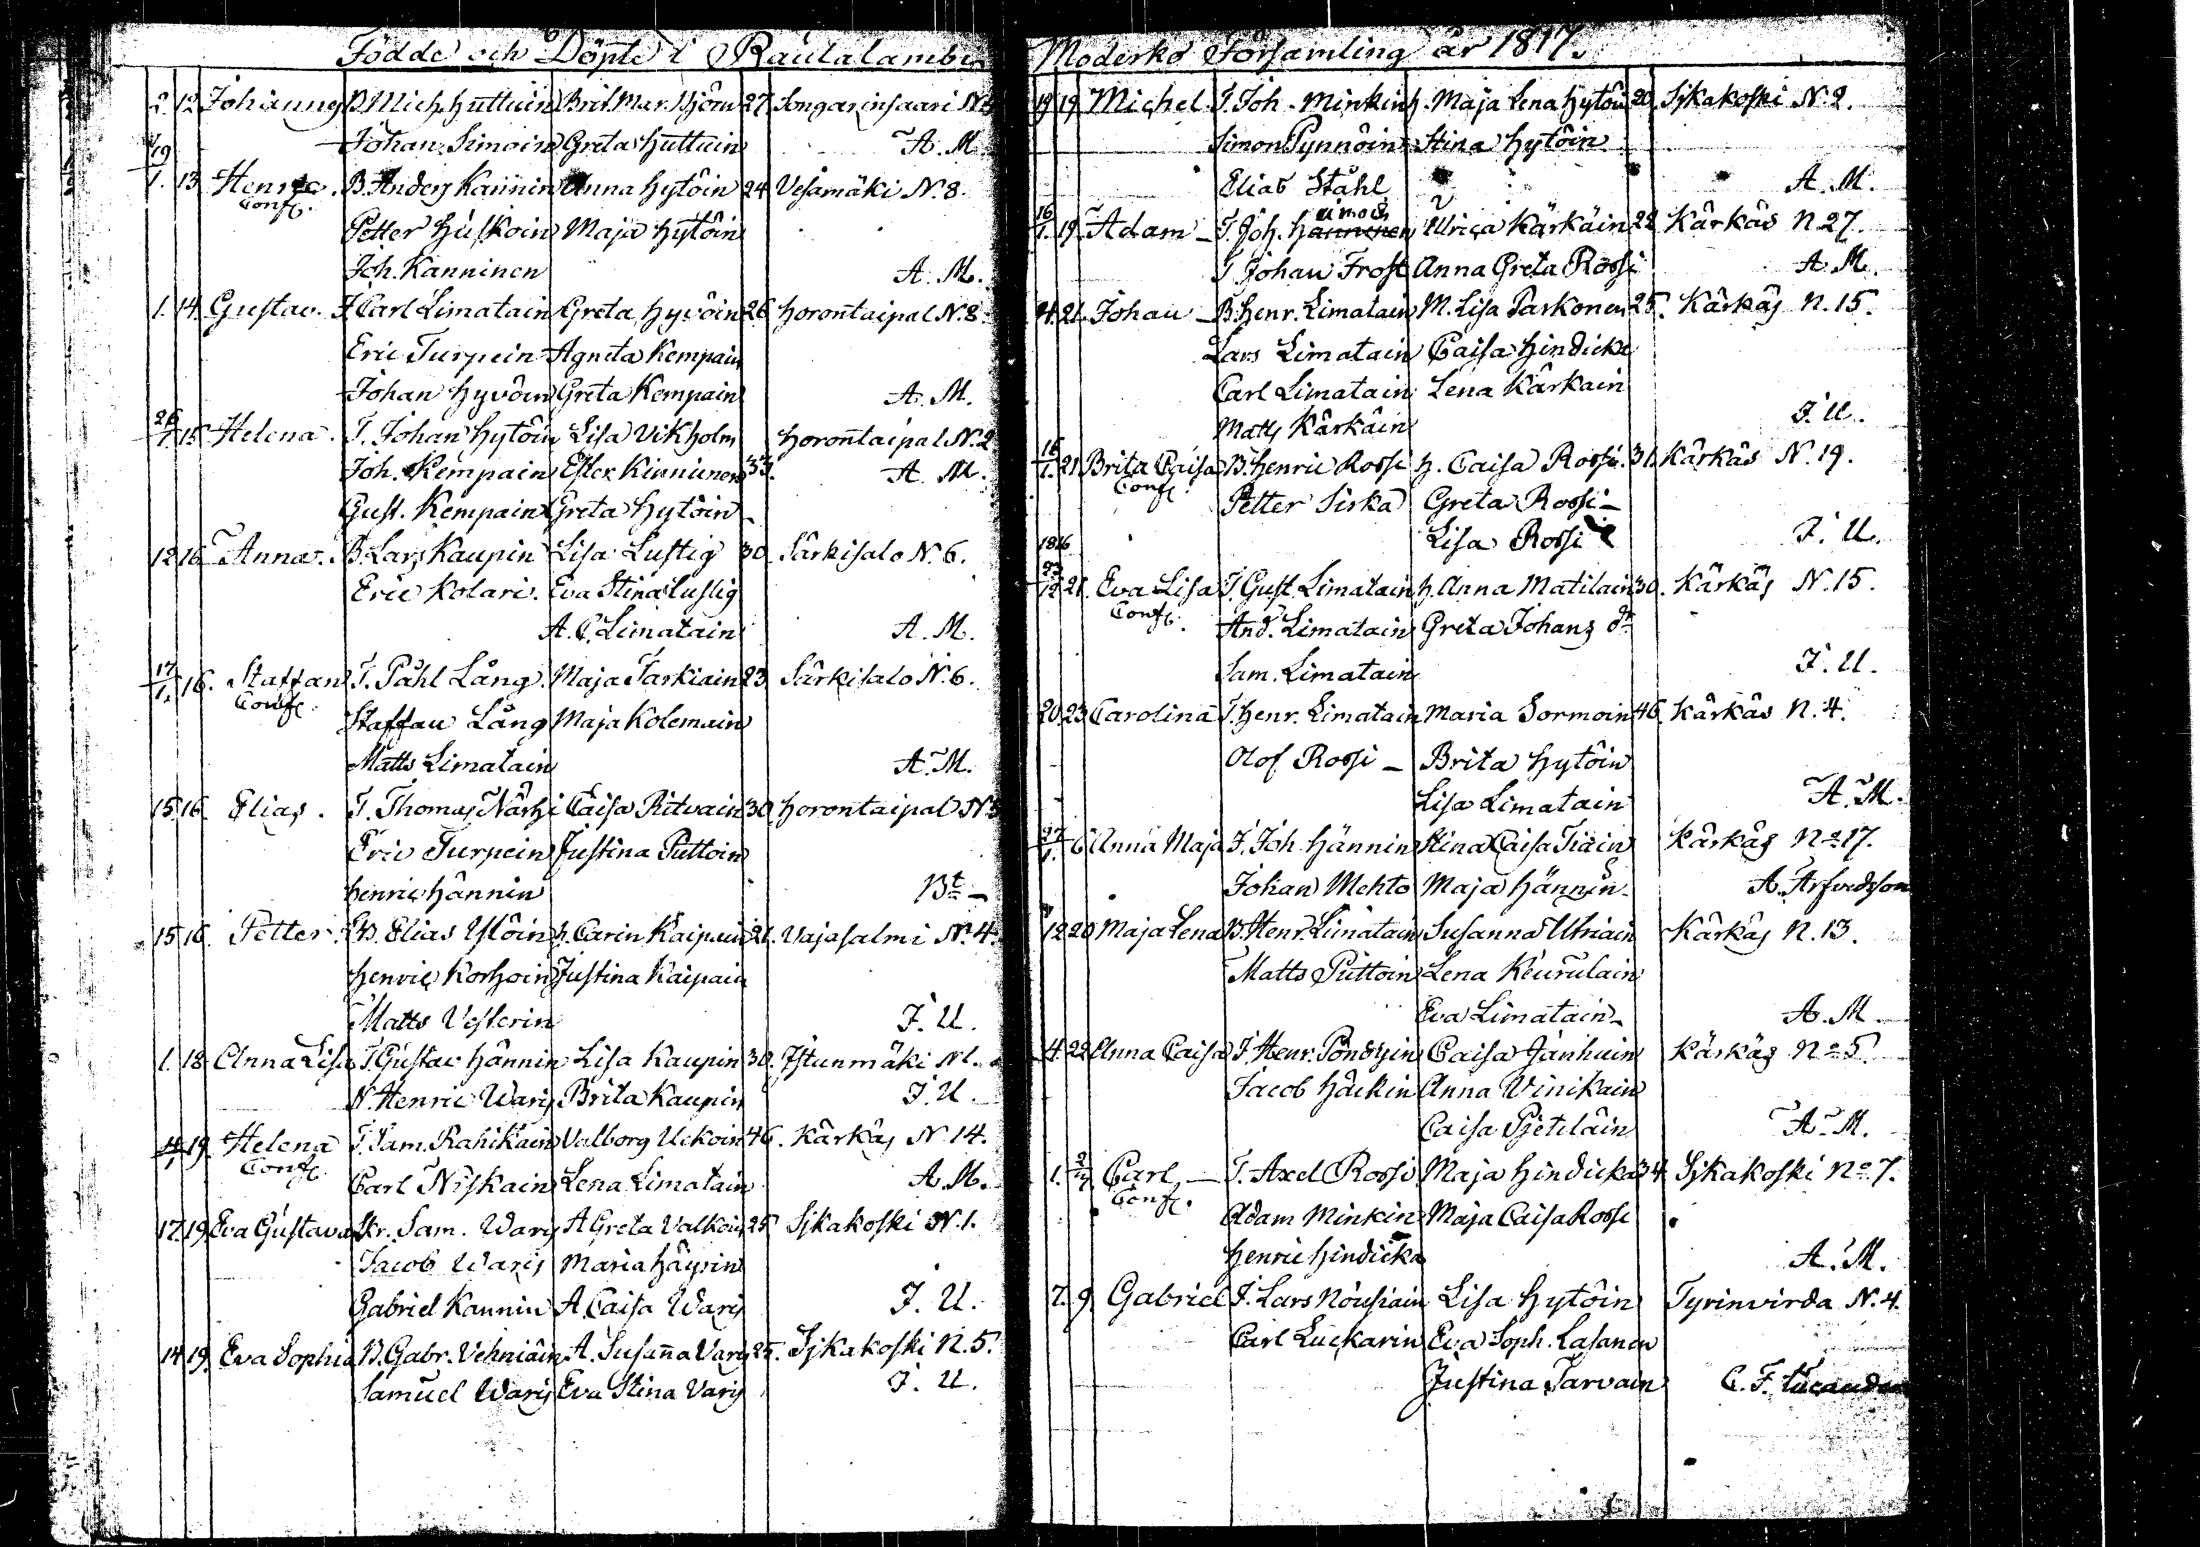 Födde och Döpte i Rautalambi
2. 12 Johannes B. Mich. Huttuin Brit. Mar. Hjôin 27 Songarinsaari N.
Johan Simoin Greta Huttuin A. M.
19/1. 13. Henric. B. Anders Kannin Anna Hytöin 24 Vesamäki N. 8.
Conf.
Petter Huskoin Maja Hytöin
Joh. Kanninen A. M.
1. 14. Gustav. T. Carl Limatain Greta Hyvöin 26 Horontaipal N. 8.
Eric Turpein Agneta Kempain
Johan Hyvöin Greta Kempain A. M.
26/1. 15 Helena. T. Johan Hytöin Lisa Vikholm Horontaipal N. 2
Joh. Kempain Ester Kinnunen 33. A. M.
Gust. Kempain Greta Hytöin
12 16 Anna. B. Lars Kaupin Lisa Lustig 30 Särkisalo N. 6.
Eric Kolari. Eva Stina Lustig
A. C. Limatain A. M.
17/1. 16. Staffan T. Påhl Lång. Maja Tarkiain 23 Särkisalo N. 6.
Conf.
Staffan Lång Maja Kolemain
Matts Limatain A. M.
15. 16. Elias. T. Thomas Närhi Caisa Ritvain 30 Horontaipal N
Eric Turpein Justina Puttoin
Henric Hännin Bt
15 16. Petter. B. Elias Ylöin h. Carin Kaipain 21. Vajasalmi N. 4.
Henric Korhoin Justina Kaipain
Matts Vesterin J. U.
1. 18 Anna Lisa T. Gustav Hännin Lisa Kaupin 30. Istunmäki N 1.
N. Henric Waris Brita Kaupin J. U.
19. Helena T. Sam. Rahikain Valborg Uckoin 46. Kärkäs N. 14.
Conf.
Carl Niskain Lena Limatain A. M.
17. 19. Eva Gustava Skr. Sam. Waris A Greta Valkoin 25 Sjkakoski N. 1.
Jacob Waris Maria Häyrin
Gabriel Kannin A. Caisa Waris J. U.
14 19. Eva Sophia B. Gabr. Vehniäin A. Susanna Varis 25. Sjkakoski N. 5.
Samuel Waris Eva Stina Varis J. U.
Moderkö Församling år 1817.
19 19 Michel T. Joh. Minkin h. Maja Lena Hytöin 20. Sjkakoski N. 2.
Simon Pynnöin Stina Hytöin
Elias Ståhl A. M.
16/1. 19. Adam T. Joh. Simoin Ulrica Kärkäin 22 Kärkäs N 27.
T Johan Frost Anna Greta Rossi A. M.
4. 21. Johan B. Henr. Limatain M. Lisa Parkonen 25. Kärkäs N. 15.
Lars Limatain Caisa Hindicka
Carl Limatain Lena Kärkäin
Matts Kärkäin J. U.
15/1. 21 Brita Caisa B. Henric Rossi h. Caisa Rossi. 31. Kärkäs N. 19.
Conf.
Petter Sirka Greta Rossi
Lisa Rossi J. U.
1816
23/12 21. Eva Lisa T. Gust. Limatain h. Anna Matilain 30. Kärkäs N. 15.
Conf.
And. Limatain Greta Johans dr
Sam. Limatain J. U.
20 23 Carolina T. Henr. Limatain Maria Sormoin 46. Kärkäs N. 4.
Olof Rossi Brita Hytöin
Lisa Limatain A. M.
27/1. 6 Anna Maja T. Joh. Hännin Stina Caisa Tiäin Kärkäs No 17.
Johan Mehto Maja Hännin A. Arfvedsson
12 20 Maja Lena B. Henr. Limatain Susanna Utriain Kärkäs N. 13.
Matts Puttoin Lena Keurulain
Eva Limatain A. M.
4. 22 Anna Caisa T. Henr. Pöndyin Caisa Janhuin Kärkäs No 5
Jacob Häckin Anna Vinikain
Caisa Pietiläin A. M.
1. 2/4 Carl T. Axel Rossi Maja Hindicka 34 Sjkakoski No 7.
Conf.
Adam Minkin Maja Caisa Rossi
Henric Hindicka A. M.
7. 9 Gabriel T. Lars Nousiain Lisa Hytöin Tyrinvirda N. 4.
Carl Luckarin Eva Soph. Lasanen
Justina Tarvain C. F.